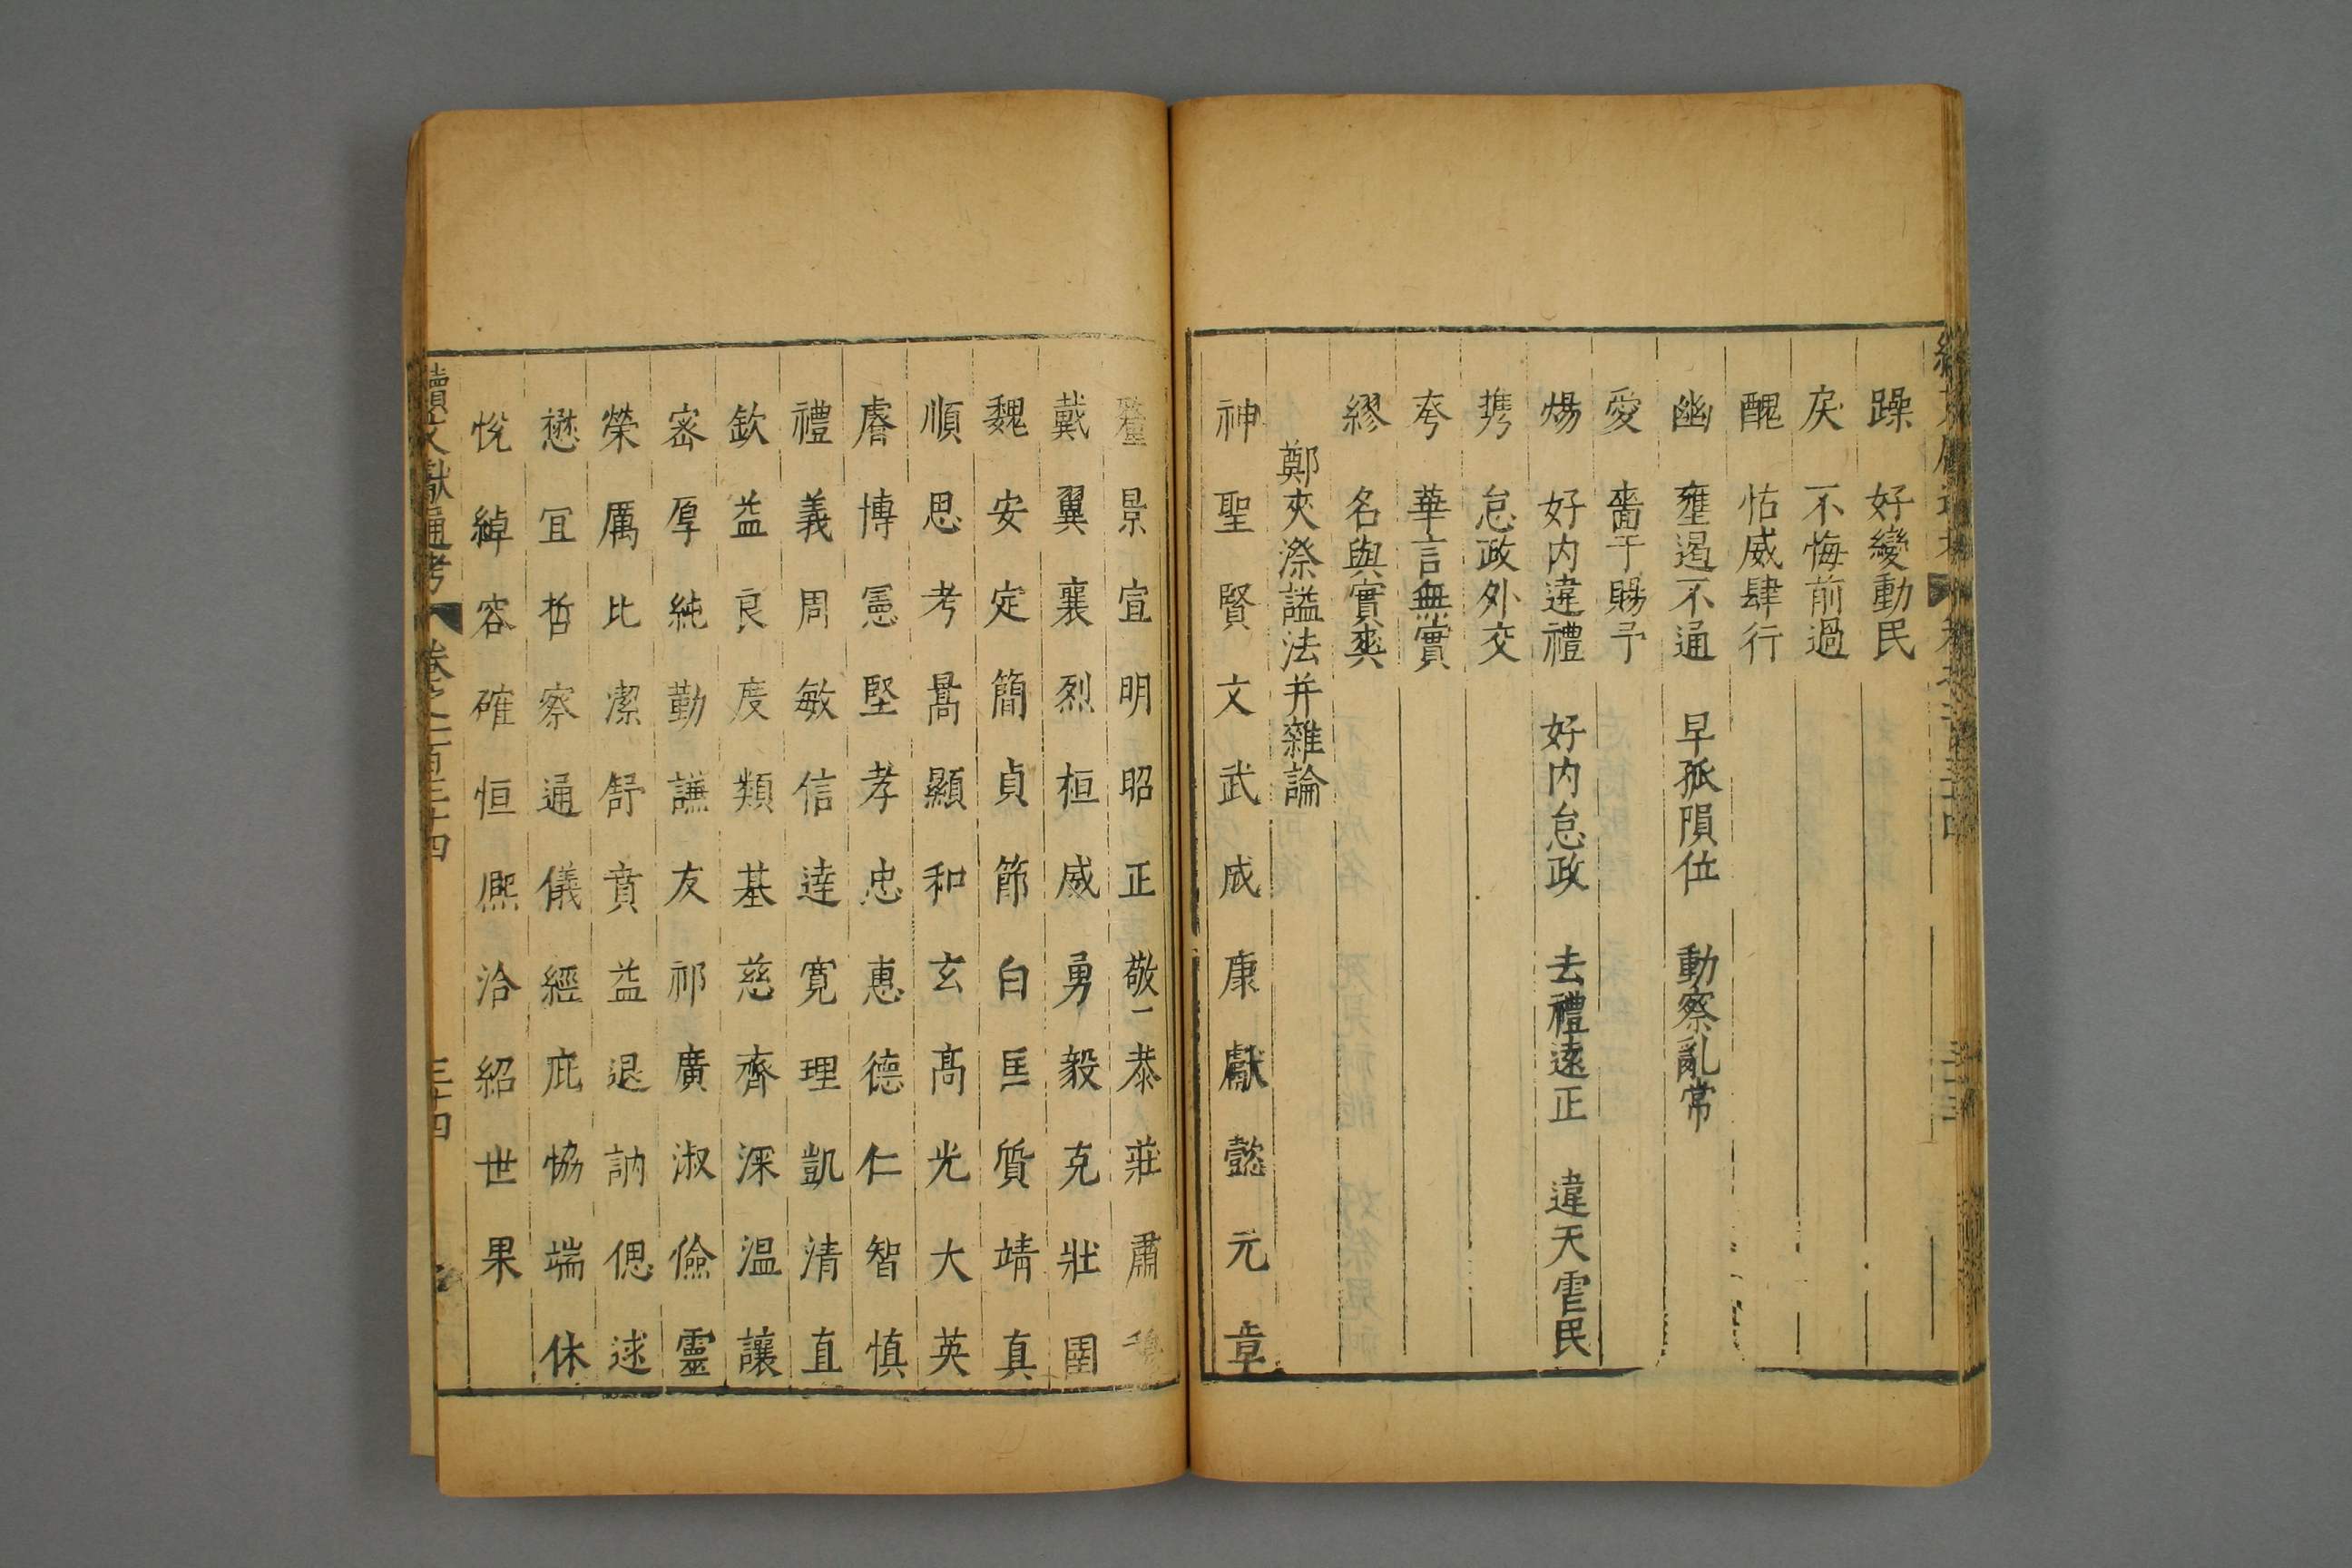 躁 好變動民
戾 不悔前過
醜 怙威肆行
幽 壅遏不通 早孤隕位 動察亂常
愛 嗇于賜予
煬 好内違禮 好内怠政 去禮遠正 違天虐民
携 怠政外交
夸 華言無實
繆 名與實爽
鄭夾漈謚法并雜論
神聖賢文武成康獻懿元章
釐景宣明昭正敬恭莊肅穆
戴翼襄烈桓威勇毅克壯圉
魏安定簡貞節白匡質靖真
順思考暠顯和玄高光大英
睿博憲堅孝忠惠德仁智慎
禮義周敏信達寬理凱清直
欽益良度類基慈齊深温讓
密厚純勤謙友祁廣淑儉靈
榮厲比潔舒賁益退訥偲逑
懋宜哲察通儀經庇恊端休
悅綽容確恒熈洽紹世果
續文獻通考 卷之一百三十四 三十四